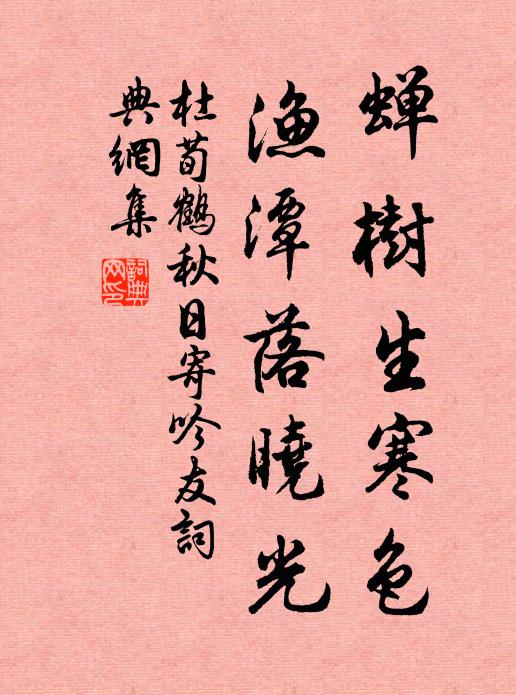 蝉樹生寒色
漁潭落曉光
杜荀鶴秋日寄吟友詞
典網集
詞典网印